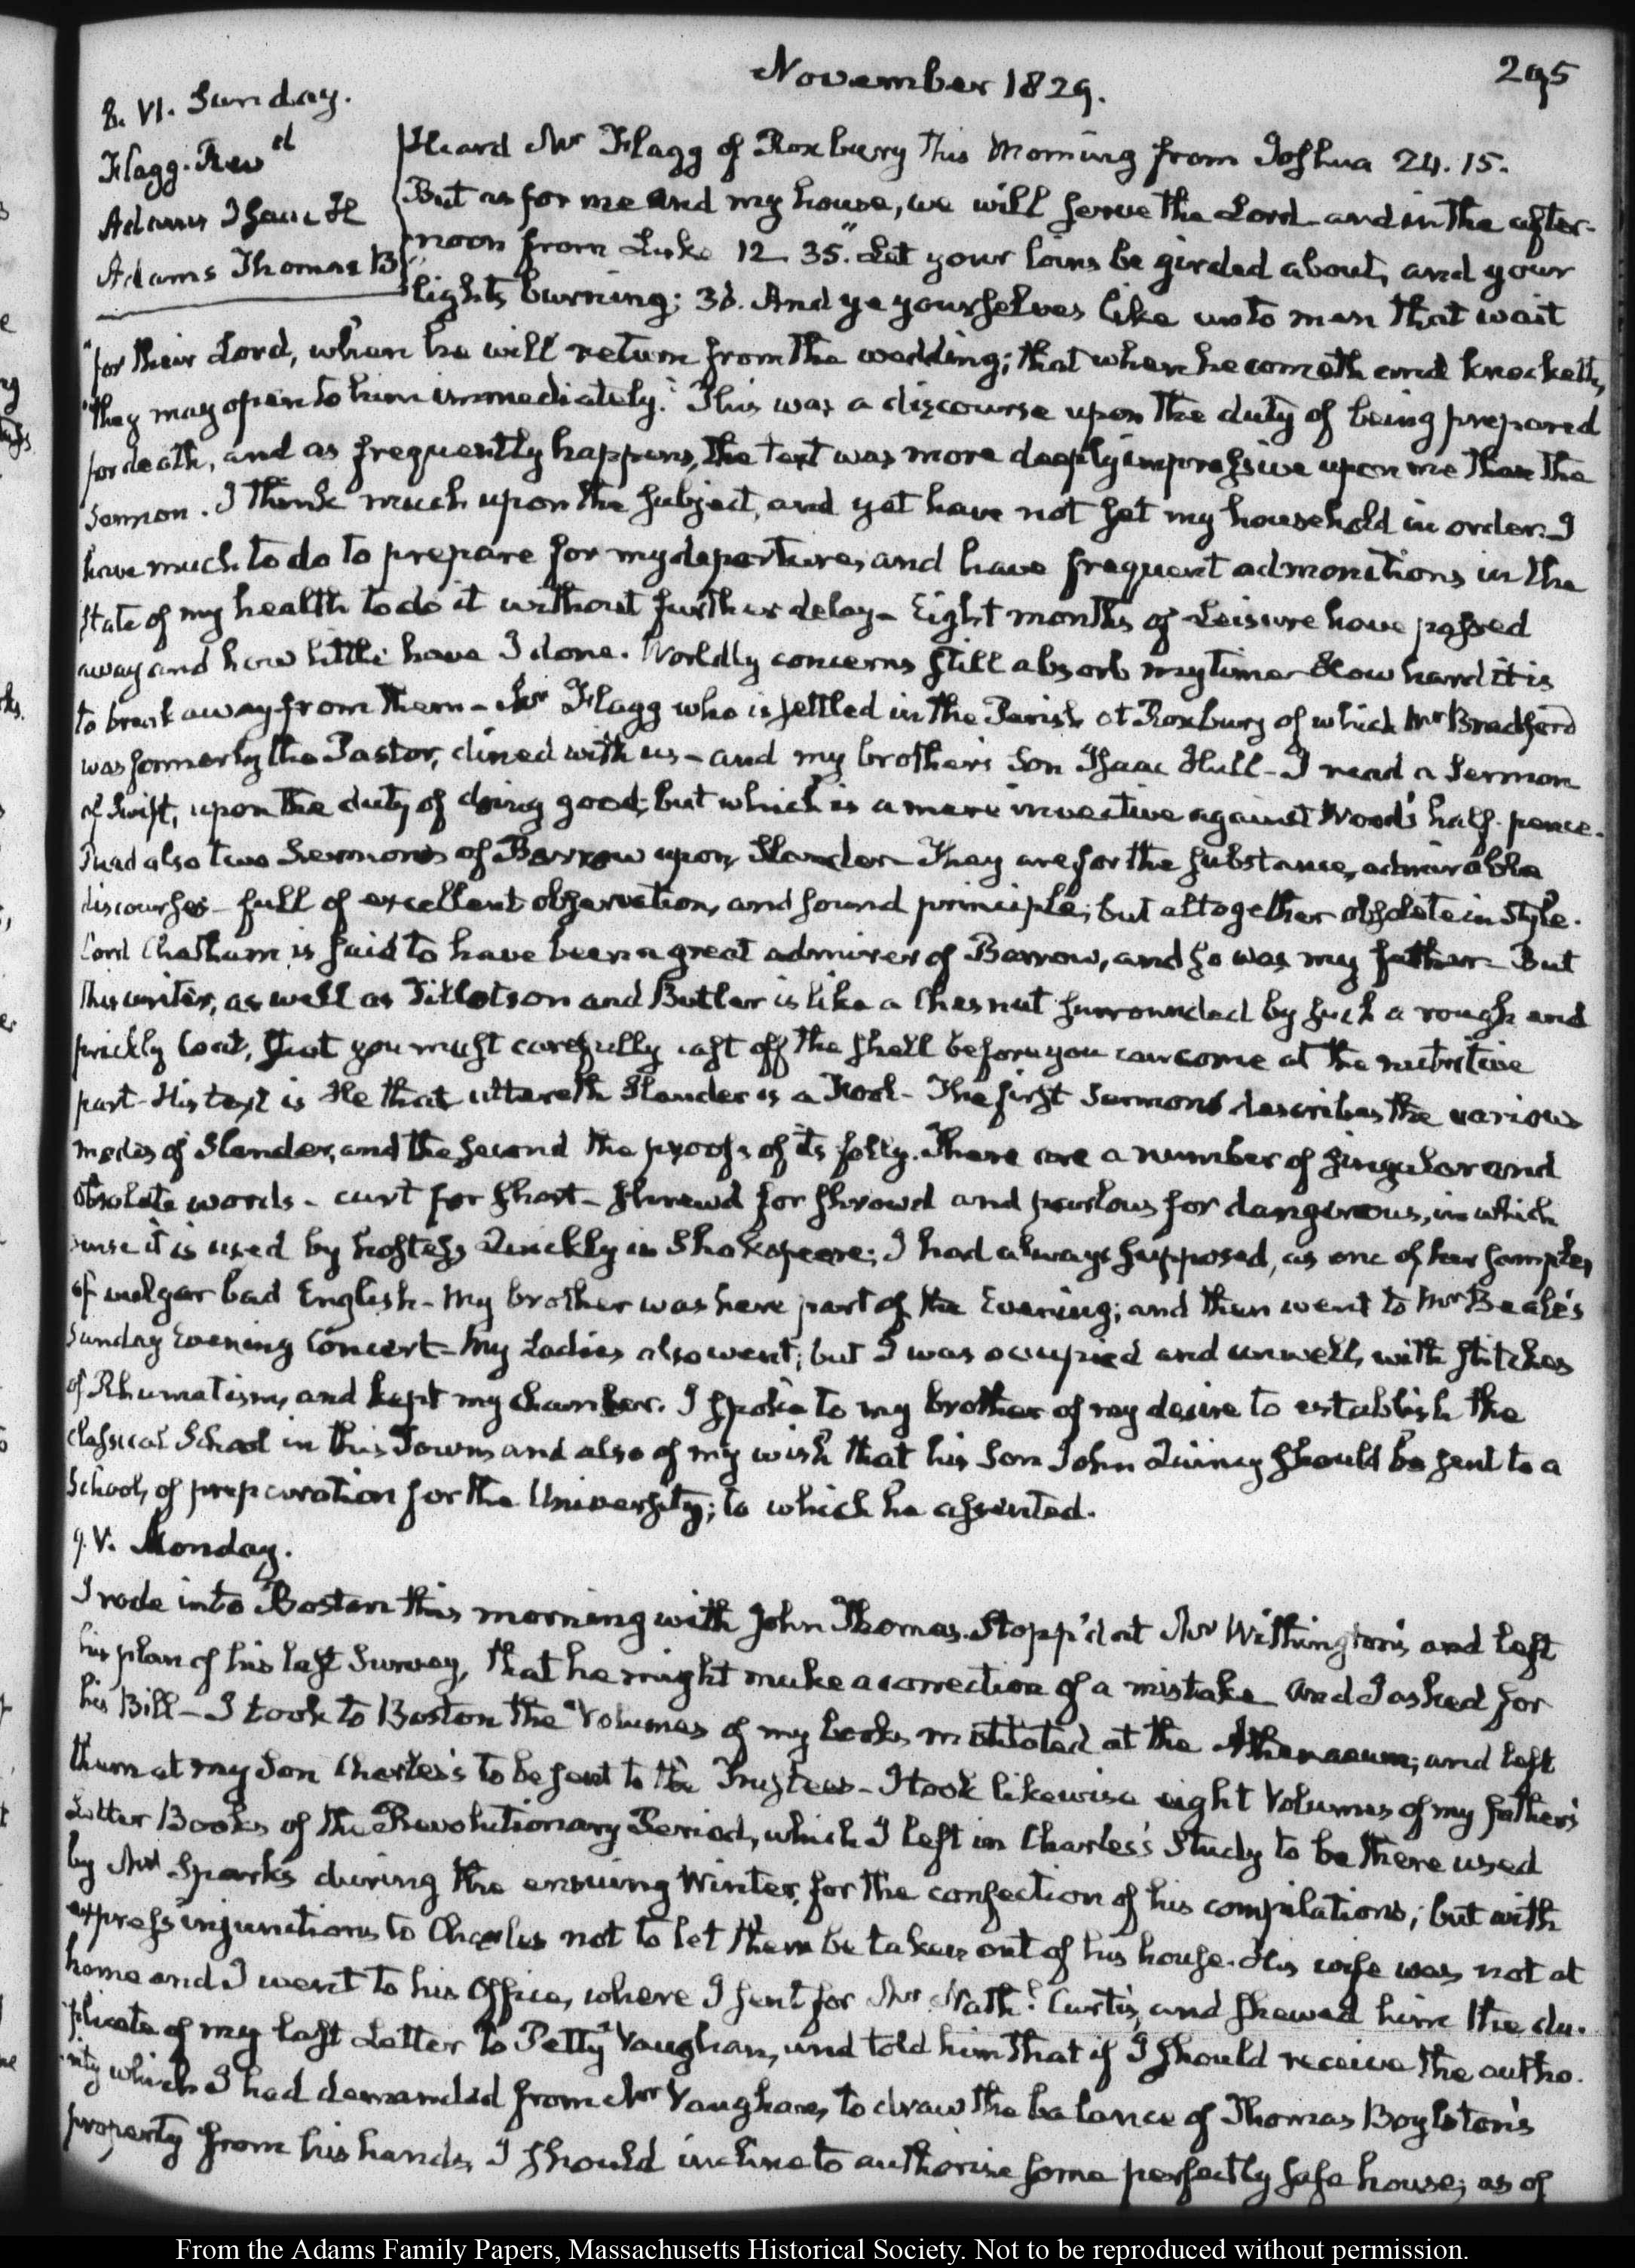 November 1829.
295
8. VI. Sunday.
Flagg. Revd
Adams Isaac H
Adams Thomas B
Heard Mr Flagg of Roxbury this Morning from Joshua 24. 15.
But as for me and my house, we will serve the Lord and in the after-
noon from Luke 12. 35. "Let your loins be girded about, and your
lights burning; 36. And ye yourselves like unto men that wait
"for their Lord, when he will return from the wedding; that when he cometh and knocketh,
"they may open to him immediately." This was a discourse upon the duty of being prepared
for death, and as frequently happens, the text was more deeply impressive upon me than the
Sermon. I think much upon the subject, and yet have not set my household in order. I
have much to do to prepare for my departure, and have frequent admonitions in the
state of my health to do it without further delay — Eight months of Leisure have passed
away and how little have I done. Worldly concerns still absorb my time — How hard it is
to break away from them — Mr Flagg who is settled in the Parish at Roxbury of which Mr Bradford
was formerly the Pastor, dined with us — and my brother's Son Isaac Hull — I read a Sermon
of Swift, upon the duty of doing good; but which is a mere invective against Wood's half-pence.
I read also two Sermons of Barrow upon Slander — They are for the substance, admirable
discourses — full of excellent observation, and sound principle; but altogether obsolete in Style.
Lord Chatham is said to have been a great admirer of Barrow, and so was my father — But
this writer, as well as Tillotson and Butler is like a Chesnut surrounded by such a rough and
prickly Coat, that you must carefully cast off the shell before you can come at the nutritive
part — His text is He that uttereth Slander is a Fool — The first Sermons describes the various
modes of Slander, and the second the proofs of its folly. There are a number of singular and
obsolete words — curt for short — shrewd for shrowd and parlous for dangerous, in which
sense it is used by hostess Quickly in Shakspeare; I had always supposed, as one of her samples
of vulgar bad English — My brother was here part of the Evening; and then went to Mr Beale's
Sunday Evening Concert — My Ladies also went; but I was occupied and unwell, with stitches
of Rhumatism, and kept my chamber. I spoke to my brother of my desire to establish the
Classical School in this Town, and also of my wish that his Son John Quincy should be sent to a
School, of preparation for the University; to which he assented.
9. V. Monday.
I rode into Boston this morning with John Thomas. Stopp'd at Mr Withington's and left
his plan of his last Survey, that he might make a correction of a mistake and I asked for
his Bill — I took to Boston the Volumes of my books mutilated at the Athenaeum; and left
them at my Son Charles's to be sent to the Trustees — I took likewise eight Volumes of my father's
Letter Books of the Revolutionary Period, which I left in Charles's Study to be there used
by Mr Sparks during the ensuing Winter, for the confection of his compilations; but with
express injunctions to Charles not to let them be taken out of his house. His wife was not at
home and I went to his Office, where I sent for Mr Nathl. Curtis, and shewed him the du-
plicate of my last Letter to Petty Vaughan, and told him that if I should receive the autho-
rity which I had demanded from Mr Vaughan, to draw the balance of Thomas Boylston's
property from his hands, I should incline to authorise some perfectly safe house; as of
From the Adams Family Papers, Massachusetts Historical Society. Not to be reproduced without permission.